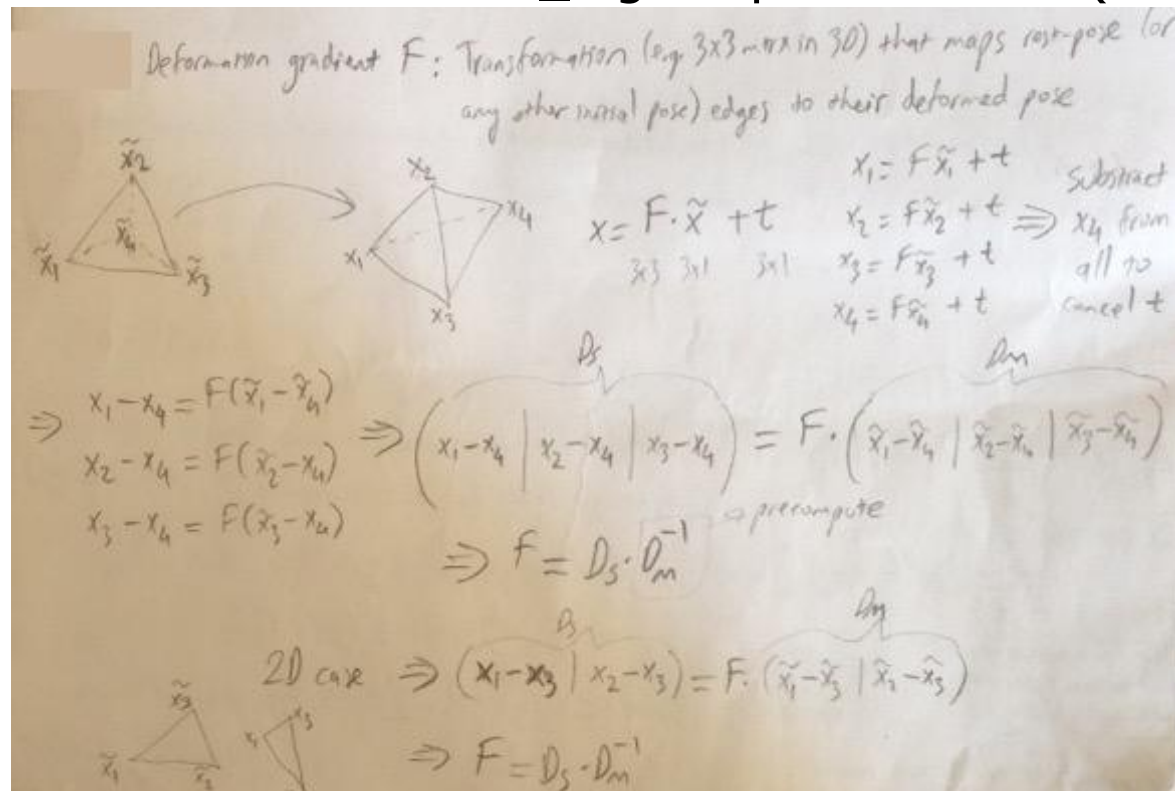 Deformation gradient F: Transformation (e.g. 3x3 matrix in 3D) that maps rest-pose (or
any other initial pose) edges to their deformed pose
x̃₂
x̃₄
x̃₁
x̃₃
x₂
x₄
x₁
x₃
x = F·x̃ + t
3x3 3x1 3x1
x₁ = Fx̃₁ + t
x₂ = Fx̃₂ + t
x₃ = Fx̃₃ + t
x₄ = Fx̃₄ + t
⇒ substract
x₄ from
all to
cancel t
⇒ x₁-x₄ = F(x̃₁-x̃₄)
x₂-x₄ = F(x̃₂-x₄)
x₃-x₄ = F(x̃₃-x₄)
Ds Dm
⇒ (x₁-x₄ | x₂-x₄ | x₃-x₄) = F·(x̃₁-x̃₄ | x̃₂-x̃₄ | x̃₃-x̃₄)
⇒ F = Ds·Dm⁻¹ → precompute
Ds Dm
2D case ⇒ (x₁-x₃ | x₂-x₃) = F·(x̃₁-x̃₃ | x̃₂-x̃₃)
x̃₃
x̃₁
x̃₂
x₃
x₁
⇒ F = Ds·Dm⁻¹